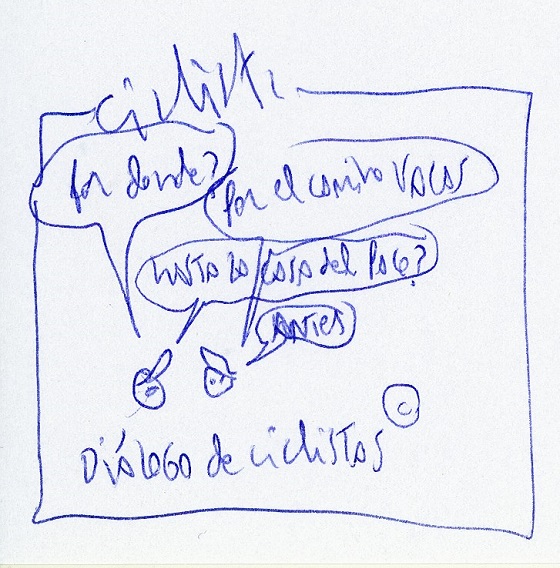 ciclista
por donde?
Por el camino VACAS
HASTA LA CASA del PAGE?
ANTES
DIÁLOGO de ciclistas
C